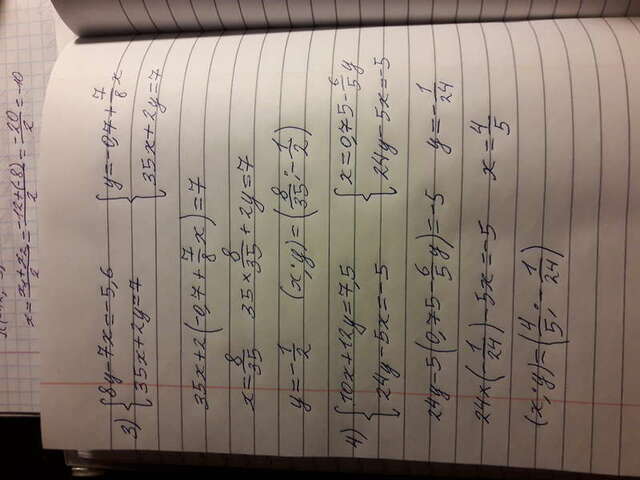 x=x₁+x₂/2=-12+(-8)/2=-20/2=-10
3) {8y-7x=-5,6 {y=-0,7+7/8x
35x+2y=7 35x+2y=7
35x+2(-0,7+7/8x)=7
x=8/35 35×8/35+2y=7
y=-1/2 (x;y)=(8/35;-1/2)
4) {10x+12y=7,5 {x=0,75-6/5y
24y-5x=-5 24y-5x=-5
24y-5(0,75-6/5y)=-5 y=-1/24
24×(-1/24)-5x=-5 x=4/5
(x;y)=(4/5;-1/24)